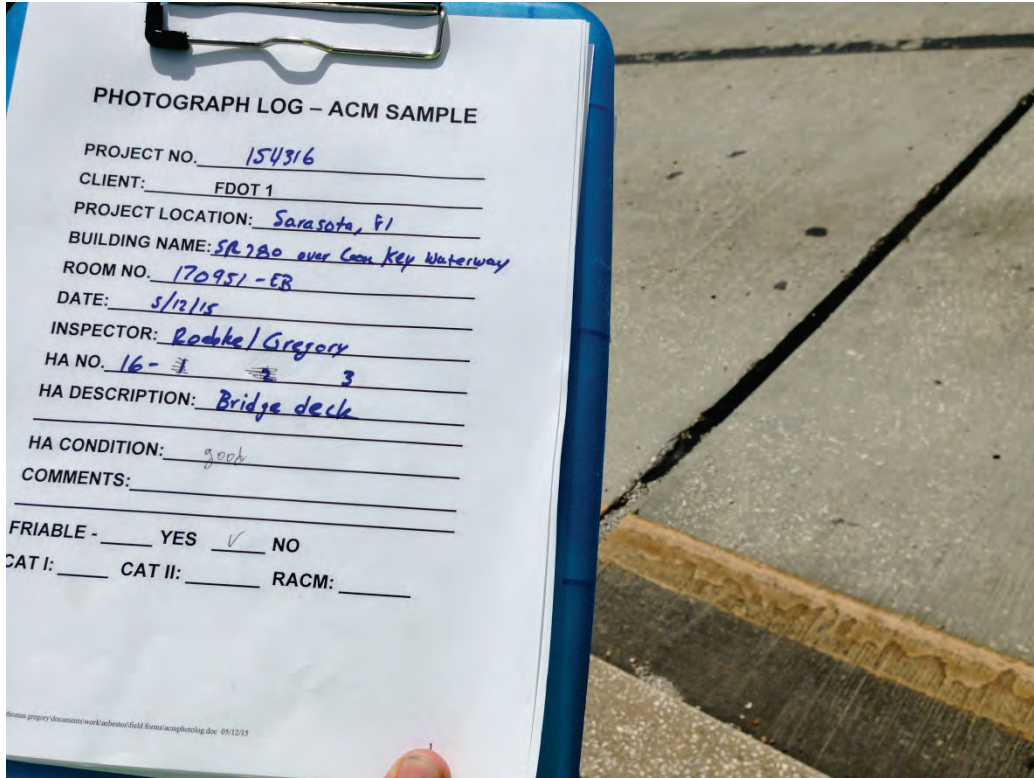 PHOTOGRAPH LOG – ACM SAMPLE
PROJECT NO. 154316
CLIENT: FDOT 1
PROJECT LOCATION: Sarasota, Fl
BUILDING NAME: SR 780 over Coon Key Waterway
ROOM NO. 170951-EB
DATE: 5/12/15
INSPECTOR: Roebke/Gregory
HA NO. 16- 1 2 3
HA DESCRIPTION: Bridge deck
HA CONDITION: good
COMMENTS:
FRIABLE - ____ YES √ NO
CAT I: ____ CAT II: ____ RACM: ____
thomas.gregory\documents\work\asbestos\field forms\acmphotolog.doc 05/12/15
1